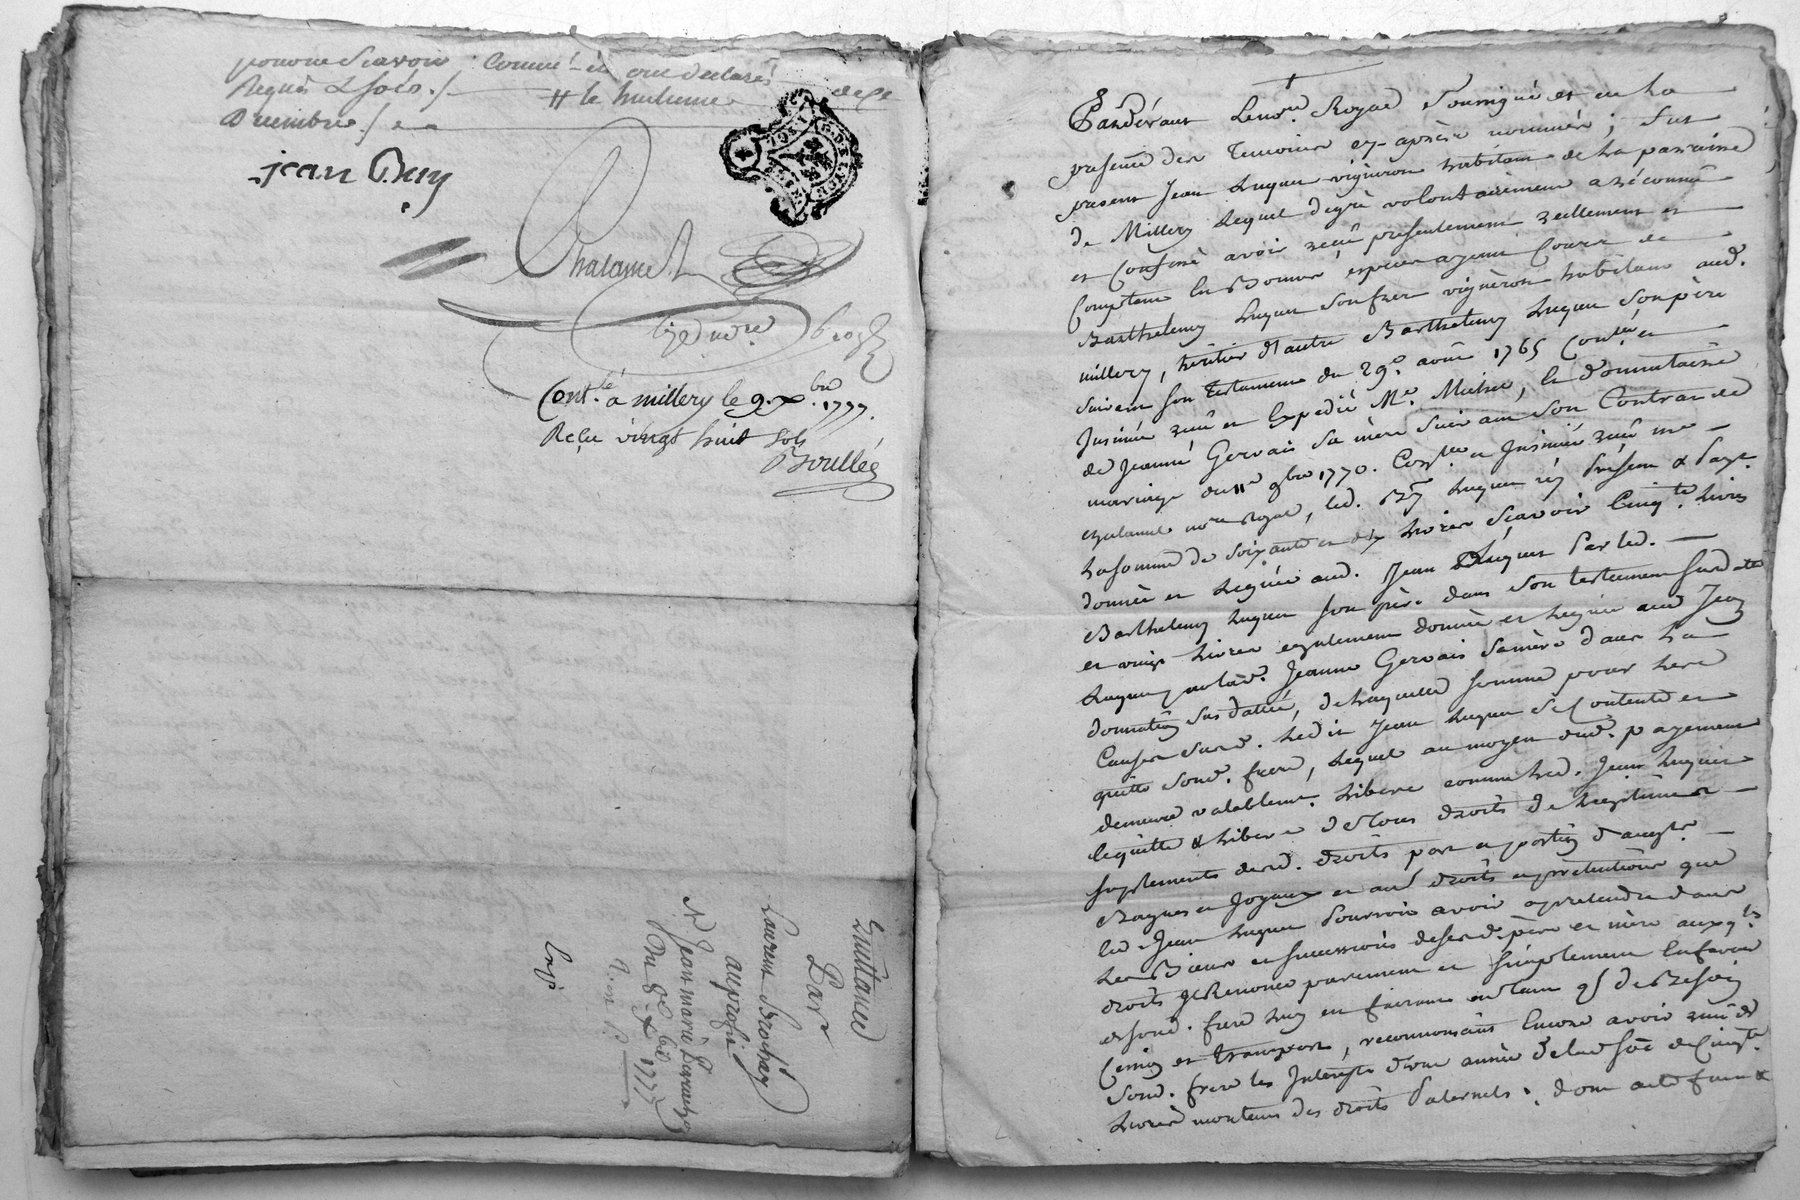 pour ne Scavoir comme il ont declarés
Requis & fois ./. # le huitieme de ce
Decembre ./.
jean Buy
Chalamel
Cont.lé a millery le 9. Xbre. 1777.
Reçu vingt huit sols
Boullée
Quittance
Par
Laurent
au profit
Jean marie
Du 8e Xbre 1777
Exp
Pardevant Le nore. Royal Soussigné et en La
presence des Temoins cy-après nommés ; fut
present Jean Luquet vigneron habitant de La parroisse
de Millery Lequel degré volontairement a réconnu
et Confessé avoir reçu presentement réellement et
Comptant En Bonnes espèces ayant Cours de
Barthelemy Luquet Son frere vigneron habitant aud.
millery, héritier d'autre Barthelemy Luquet Son père
Suivant Son Testament du 29e. aout 1765 Conlé. et
Insinué reçu et Expedié Me. Michel, et donnataire
de Jeanne Gervais Sa mère Suivant Son Contrat de
mariage du 11e 9bre 1770. Conlé. et Insinué reçu me
Chalamel nore Royal, led. By Luquet icy Présent &
La somme de Soixante et dix Livres Sçavoir Cinqte. Livres
donnée et Leguée aud. Jean Luquet Par led.
Barthelemy Luquet Son père dans Son testament Susdatté
et vingt Livres egalement donnée et Leguée aud Jean
Luquet par lad. Jeanne Gervais Sa mère dans La
donnation Susdattée, de Laquelle Somme pour Les
Causes Susd. Ledit Jean Luquet Se Contente et
quitte Sond. frere, Lequel au moyen dud. payement
demeure valablemt. Liberé comme Led. Jean Luquet
le quitte & Libere de Tous droits de Legitime
Suplements desd. droits part et portion d'augt.
Bagues et Joyaux et aud droits et pretentions que
led Jean Luquet Pourroit avoir a pretendre dans
Les Biens et Successions de Sesd. père et mère auxqls
droits il Renonce purement et Simplement En faveur
de Sond. frere Luy en faisant en Tant qe de Besoin
Cession et transport, reconnoissant Encore avoir reçu de
Sond. frere les Interests d'une année de lad Soe de Cinqte.
Livres montant des droits Paternels, Dont acte fait &